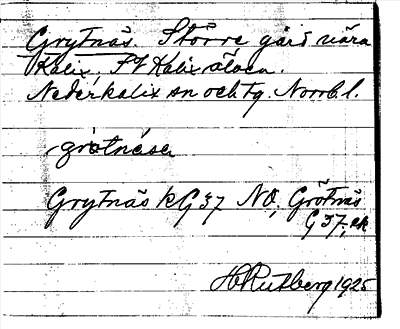 Grytnäs. Större gård nära
Kalix, SV Kalix älven.
Nederkalix sn och tg. Norrb. l.
grötnäse
Grytnäs k G 37 NO; Grötnäs
G 37; ek
H Rutberg 1925